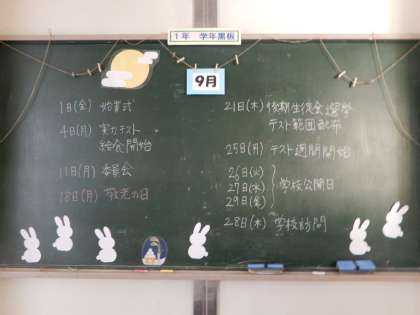 1年 学年黒板
9月
1日(金) 始業式
4日(月) 実力テスト
給食開始
11日(月) 委員会
18日(月) 敬老の日
21日(木) 後期生徒会選挙
テスト範囲配布
25日(月) テスト週間開始
26日(火)
27日(水)
29日(金)
学校公開日
28日(木) 学校訪問